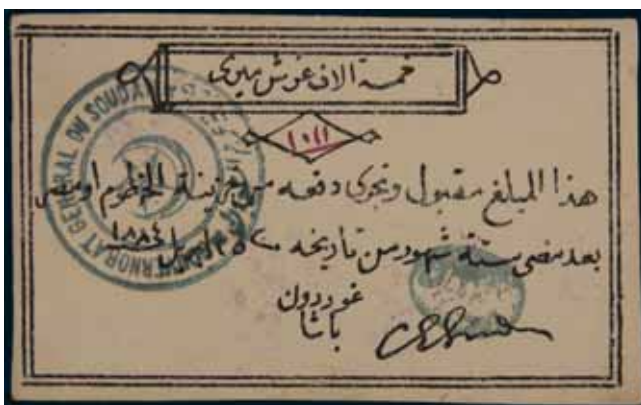 خمسة الاف غرش ميرى
١٠١١
هذا المبلغ مقبول ونجرى دفعه من خزينة الخرطوم او مصر
بعد مضى ستة شهور من تاريخه ٢٥ ابريل ١٨٨٤
غوردون
باشا
GOUVERNORAT GENERAL DU SOUDAN